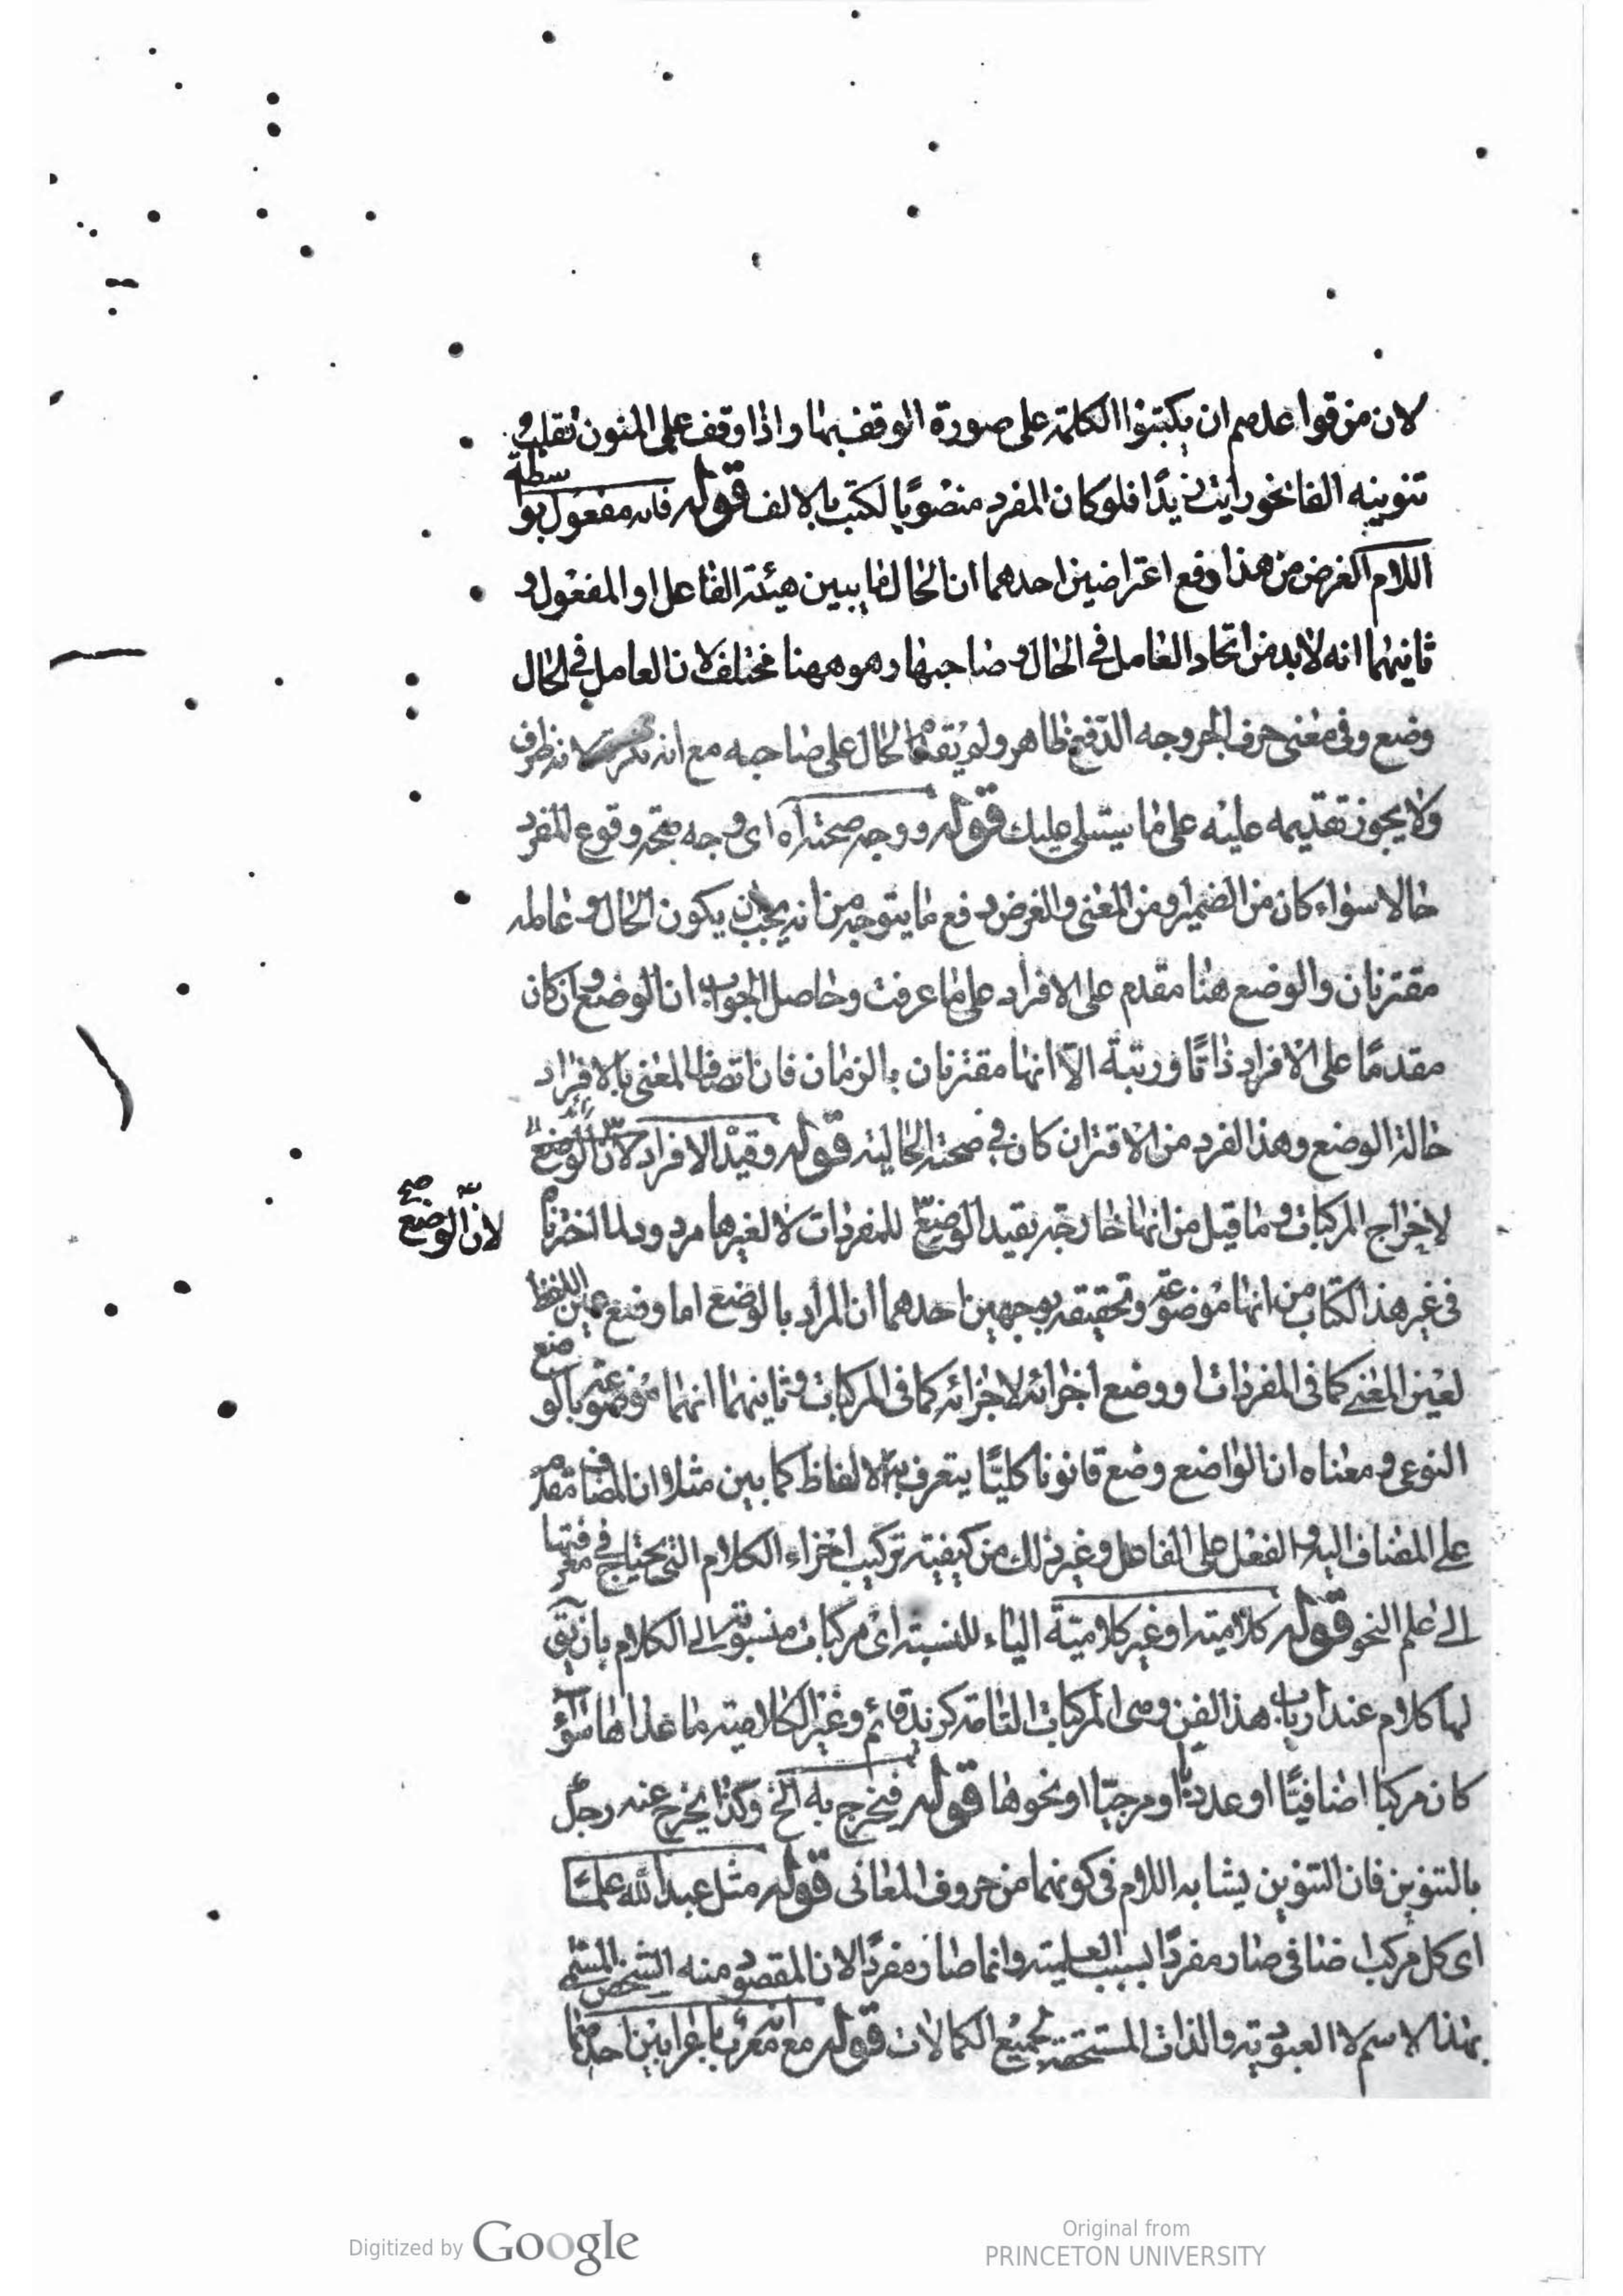 لان من قواعدهم ان يكبتوا الكلمة على صورة الوقف بها واذا وقف على المنون تقلب
تنوينه الفا نحو رايت زيدًا فلو كان المفرد منصوبًا لكتب بالالف قوله فانه مفعول بوا سطة
اللام الغرض من هذا دفع اعتراضين احدهما ان الحال ما يبين هيئة الفاعل او المفعول و
ثانيهما انه لا بد من اتحاد العامل في الحال وصاحبها وهو ههنا مختلف لان العامل في الحال
وضع وفى معنى حرف الجر وجه الدفع ظاهر ولم يقدم الحال على صاحبه مع انه نكرة لانه ظرف
ولا يجوز تقديمه عليه على ما سيتلى عليك قوله ووجه صحته اه اى وجه صحة وقوع المفرد
حالا سواء كان من الضمير او من المعنى والغرض دفع ما يتوجه من انه يجب ان يكون الحال وعامله
مقترنان والوضع هنا مقدم على الافراد على ما عرفت وحاصل الجواب ان الوضع وان كان
مقدمًا على الافراد ذاتًا ورتبة الّا انهما مقترنان بالزمان فان اتصاف المعنى بالافراد
حالة الوضع وهذا الفرد من الاقتران كاف في صحة الحالية قوله وقيد الافراد لانّ الوضع
لاخراج المركبات وما قيل من انها خارجة بقيد الوضع للمفردات لا لغيرها مردود لما اخترنا
لانّ الوضع صح
فى غير هذا الكتاب من انها موضوعة وتحقيقه بوجهين احدهما ان المراد بالوضع اما وضع عين اللفظ
لعين المعنى كما فى المفردات او وضع اجزائه لاجزائه كما فى المركبات وثانيهما انهما موضوعة بالو ضع
النوعى ومعناه ان الواضع وضع قانونا كليًا يتعرف به الالفاظ كما بين مثلا ان المضاف مقدم
على المضاف اليه والفعل على الفاعل وغير ذلك من كيفية تركيب اجزاء الكلام التى يحتاج فى معرفتها
الى علم النحو قوله كلامية او غير كلامية الياء للنسبة اى مركبات منسوبة الى الكلام بان يق
لها كلام عند ارباب هذا الفن وهى المركبات التامة كزيد قائم وغير الكلامية ما عداها سواء
كان مركبا اضافيًا او عدديًا او مزجيًا او نحوها قوله فيخرج به الخ وكذا يخرج عنه رجل
بالتنوين فان التنوين يشابه اللام فى كونهما من حروف المعانى قوله مثل عبد الله علمًا
اى كل مركب اضافى صار مفردًا بسبب العلمية وانما صار مفردًا لان المقصود منه الشخص المسمى
بهذا الاسم لا العبودية والذات المستحقة لجميع الكمالات قوله مع انه معرب باعرابين احدهما
Digitized by Google
Original from
PRINCETON UNIVERSITY